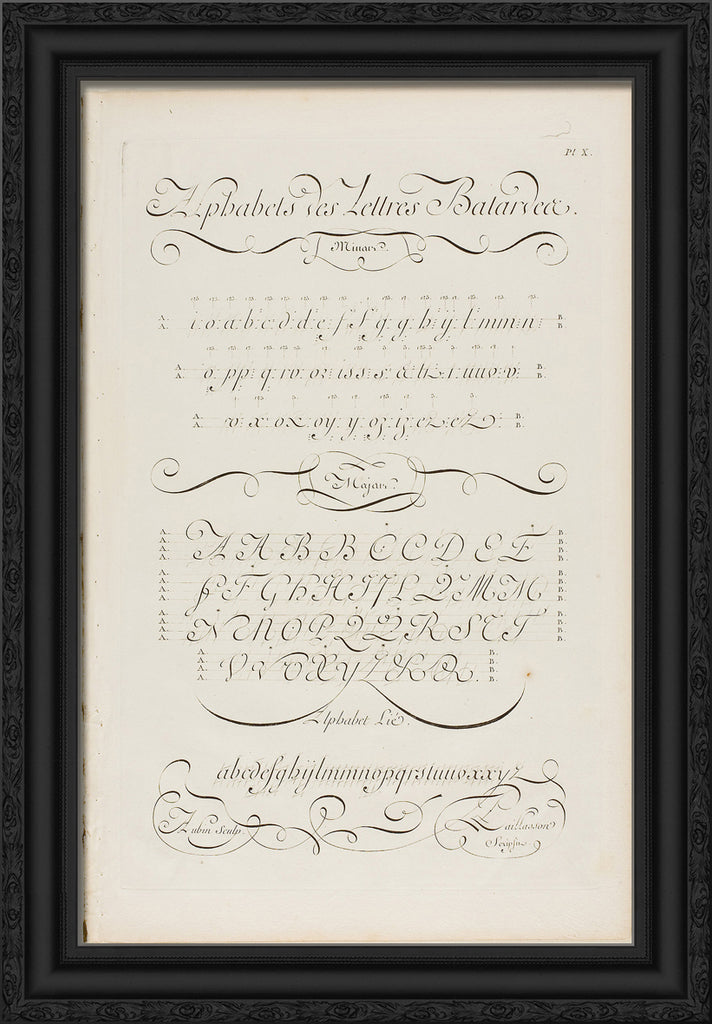 Pl X.
Alphabets des Lettres Batardes.
Minars.
i o a b c d d e f f g g h ij l m m n
o p p q r v or i s s s & tz t u u v v
v x o x oy y oz iz ez ez
Majars.
A A B B C C D E E
F F G h H I J L L M M
N N O P Q Q R S T T
V V O X Y Z & &.
Alphabet Lié.
abcdefghijlmmnopqrstuuvxxyz
Aubin Sculp.
Paillasson
Scripsit